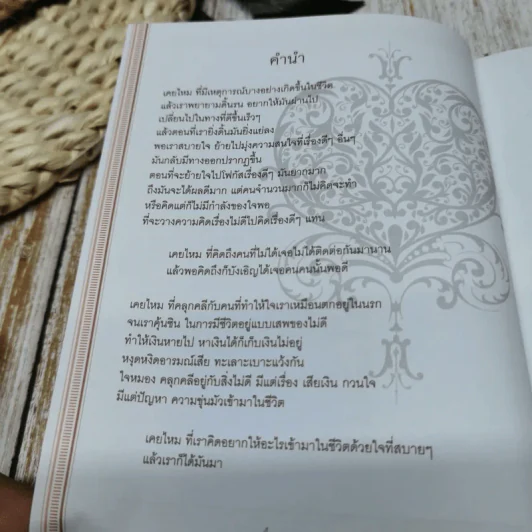 คำนำ
เคยไหม ที่มีเหตุการณ์บางอย่างเกิดขึ้นในชีวิต
แล้วเราพยายามดิ้นรน อยากให้มันผ่านไป
เปลี่ยนไปในทางที่ดีขึ้นเร็วๆ
แล้วตอนที่เรายิ่งดิ้นมันยิ่งแย่ลง
พอเราสบายใจ ย้ายไปมุ่งความสนใจที่เรื่องดีๆ อื่นๆ
มันกลับมีทางออกปรากฏขึ้น
ตอนที่จะย้ายใจไปโฟกัสเรื่องดีๆ มันยากมาก
ถึงมันจะได้ผลดีมาก แต่คนจำนวนมากก็ไม่คิดจะทำ
หรือคิดแต่ก็ไม่มีกำลังของใจพอ
ที่จะวางความคิดเรื่องไม่ดีไปคิดเรื่องดีๆ แทน
เคยไหม ที่คิดถึงคนที่ไม่ได้เจอไม่ได้ติดต่อกันมานาน
แล้วพอคิดถึงก็บังเอิญได้เจอคนคนนั้นพอดี
เคยไหม ที่คลุกคลีกับคนที่ทำให้ใจเราเหมือนตกอยู่ในนรก
จนเราคุ้นชิน ในการมีชีวิตอยู่แบบเสพของไม่ดี
ทำให้เงินหายไป หาเงินได้ก็เก็บเงินไม่อยู่
หงุดหงิดอารมณ์เสีย ทะเลาะเบาะแว้งกัน
ใจหมอง คลุกคลีอยู่กับสิ่งไม่ดี มีแต่เรื่อง เสียเงิน กวนใจ
มีแต่ปัญหา ความขุ่นมัวเข้ามาในชีวิต
เคยไหม ที่เราคิดอยากให้อะไรเข้ามาในชีวิตด้วยใจที่สบายๆ
แล้วเราก็ได้มันมา